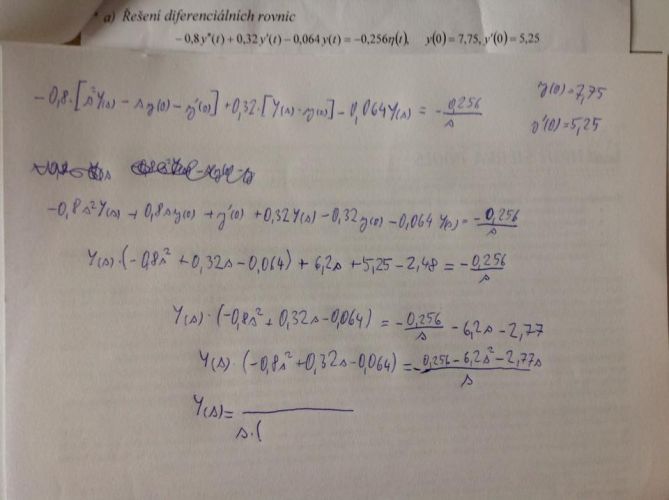 a) Řešení diferenciálních rovnic
-0,8y''(t)+0,32y'(t)-0,064y(t)=-0,256η(t), y(0)=7,75, y'(0)=5,25
-0,8·[s²Y(s)-sy(0)-y'(0)]+0,32·[Y(s)-y(0)]-0,064Y(s)=-0,256/s
y(0)=7,75
y'(0)=5,25
-0,8s²Y(s)+0,8sy(0)+y'(0)+0,32Y(s)-0,32y(0)-0,064Y(s)=-0,256/s
Y(s)·(-0,8s²+0,32s-0,064)+6,2s+5,25-2,48=-0,256/s
Y(s)·(-0,8s²+0,32s-0,064)=-0,256/s-6,2s-2,77
Y(s)·(-0,8s²+0,32s-0,064)=-0,256-6,2s²-2,77s/s
Y(s)=
s·(